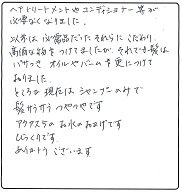 ヘアトリートメントやコンディショナー等が
必要なくなりました。
以前は必需品だった それらに こだわり
高価な物をつけてましたが、それでも髪は
パサつき オイルやバームを更につけて
おりました。
ところが 現在は シャンプーのみで
髪サラサラ つやつやです
アクアス5の お水のおかげです
びっくりです
ありがとう ございます